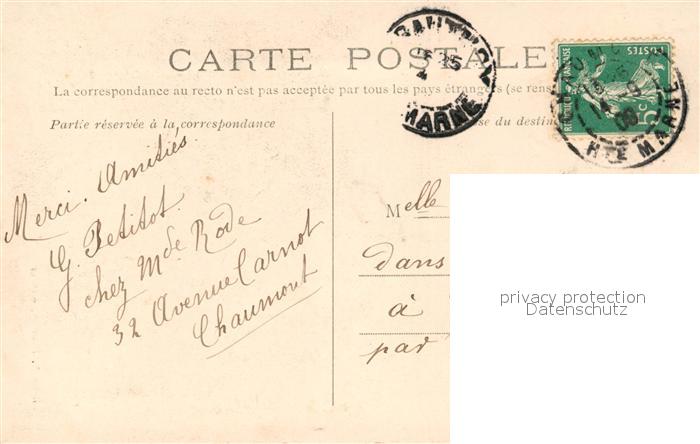 CARTE POSTALE
La correspondance au recto n'est pas acceptée par tous les pays étrangers (se rens
Partie réservée à la correspondance
du destin
MARNE
Hte MARNE
POSTES
5c
Merci. Amitiés.
G. Petitot.
chez Mde Rode
32 Avenue Carnot
Chaumont
Melle
dans
à
par
privacy protection
Datenschutz